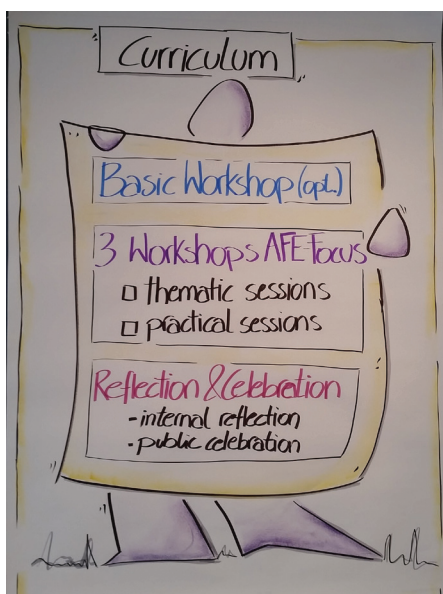 Curriculum
Basic Workshop (opt.)
3 Workshops AFE-Focus
thematic sessions
practical sessions
Reflection & Celebration
- internal reflection
- public celebration